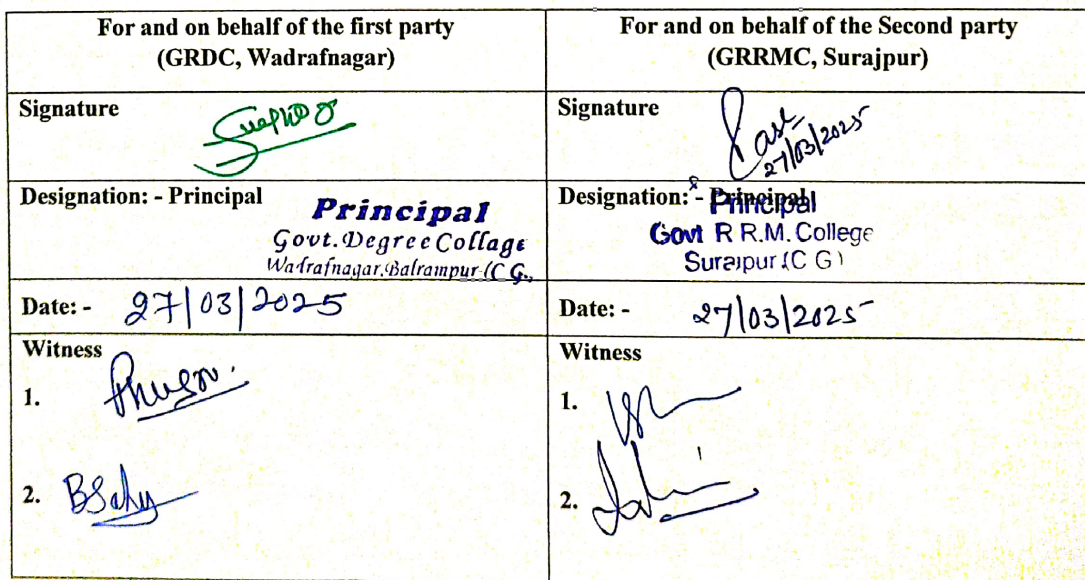 For and on behalf of the first party
(GRDC, Wadrafnagar)
For and on behalf of the Second party
(GRRMC, Surajpur)
Signature
Signature
27/03/2025
Designation: - Principal
Principal
Govt. Degree Collage
Wadrafnagar, Balrampur (C G.,
Designation: - Principal
Principal
Govt R R.M. College
Surajpur (C G)
Date: - 27/03/2025
Date: - 27/03/2025
Witness
1.
2. BSahy
Witness
1.
2.